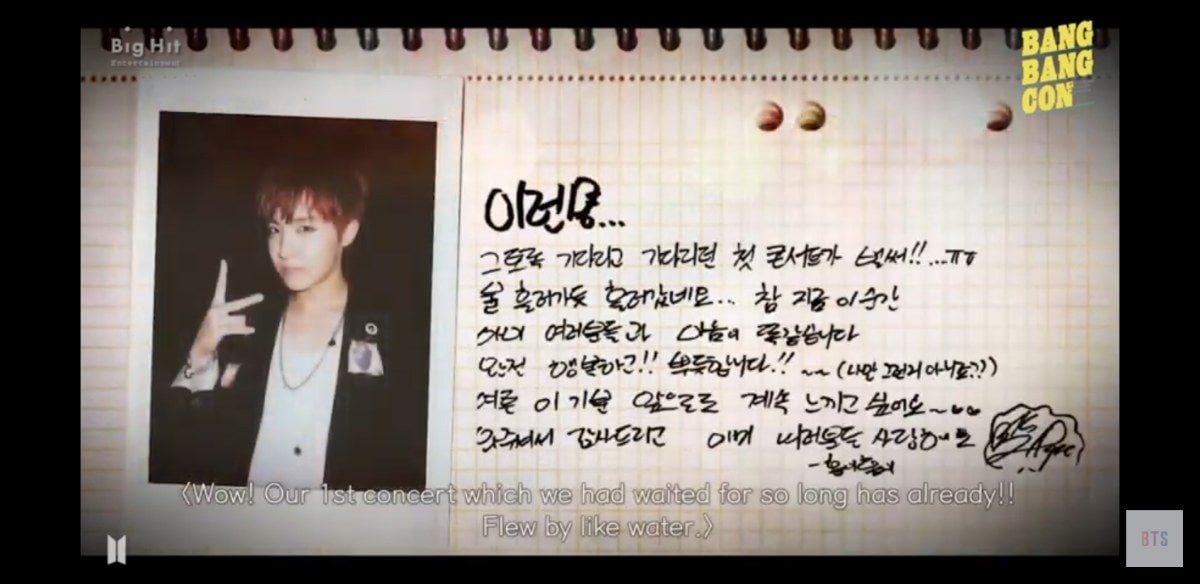 Big Hit
Entertainment
BANG
BANG
CON
이런용...
그토록 기다리고 기다리던 첫 콘서트가 벌써!!...ㅠㅠ
물 흘러가듯 흘러갔네요... 참 지금 이 순간
여러분들과 마음이 똑같습니다
완전 행복하고!! 뿌듯합니다!! ~~ (나만 그런거 아니죠??)
저는 이 기분 앞으로도 계속 느끼고 싶어요~
와주셔서 감사드리고 아미 여러분들 사랑해요
Hope
〈Wow! Our 1st concert which we had waited for so long has already!!
Flew by like water.〉
BTS